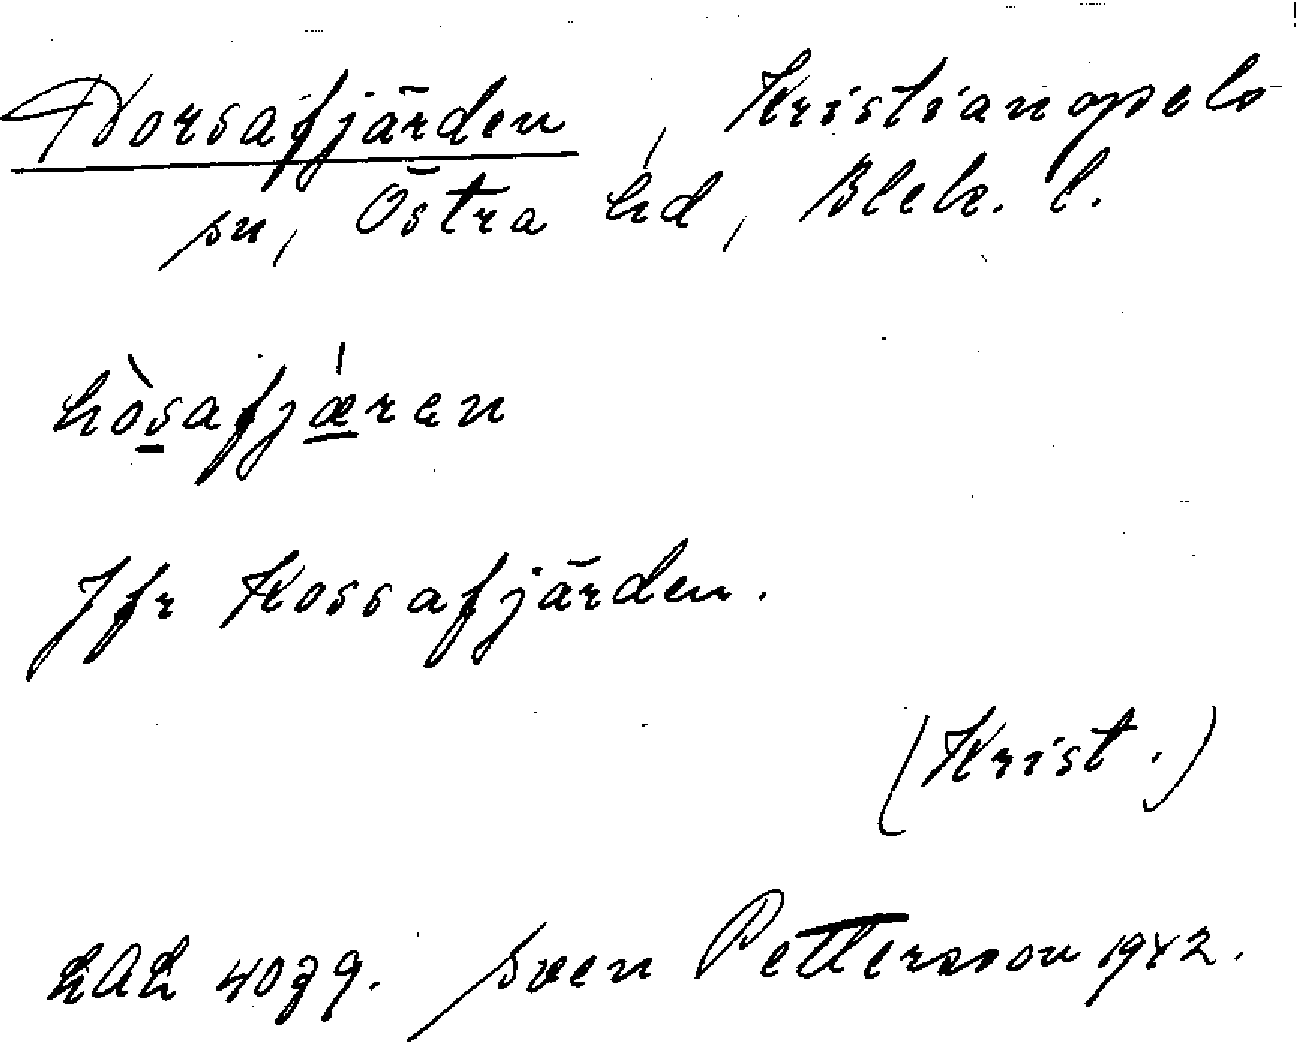 Horsafjärden, Kristianopels
sn, Östra hd, Blek. l.
hòsafjæ̍ren
Jfr Kossafjärden.
(Krist.)
LAL 4039. Sven Pettersson 1942.